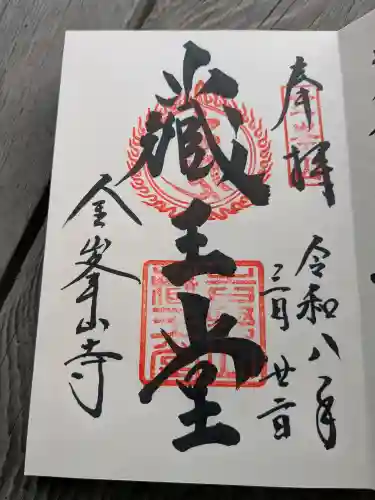 奉拝
令和八年
三月廿二日
蔵王堂
金峯山寺